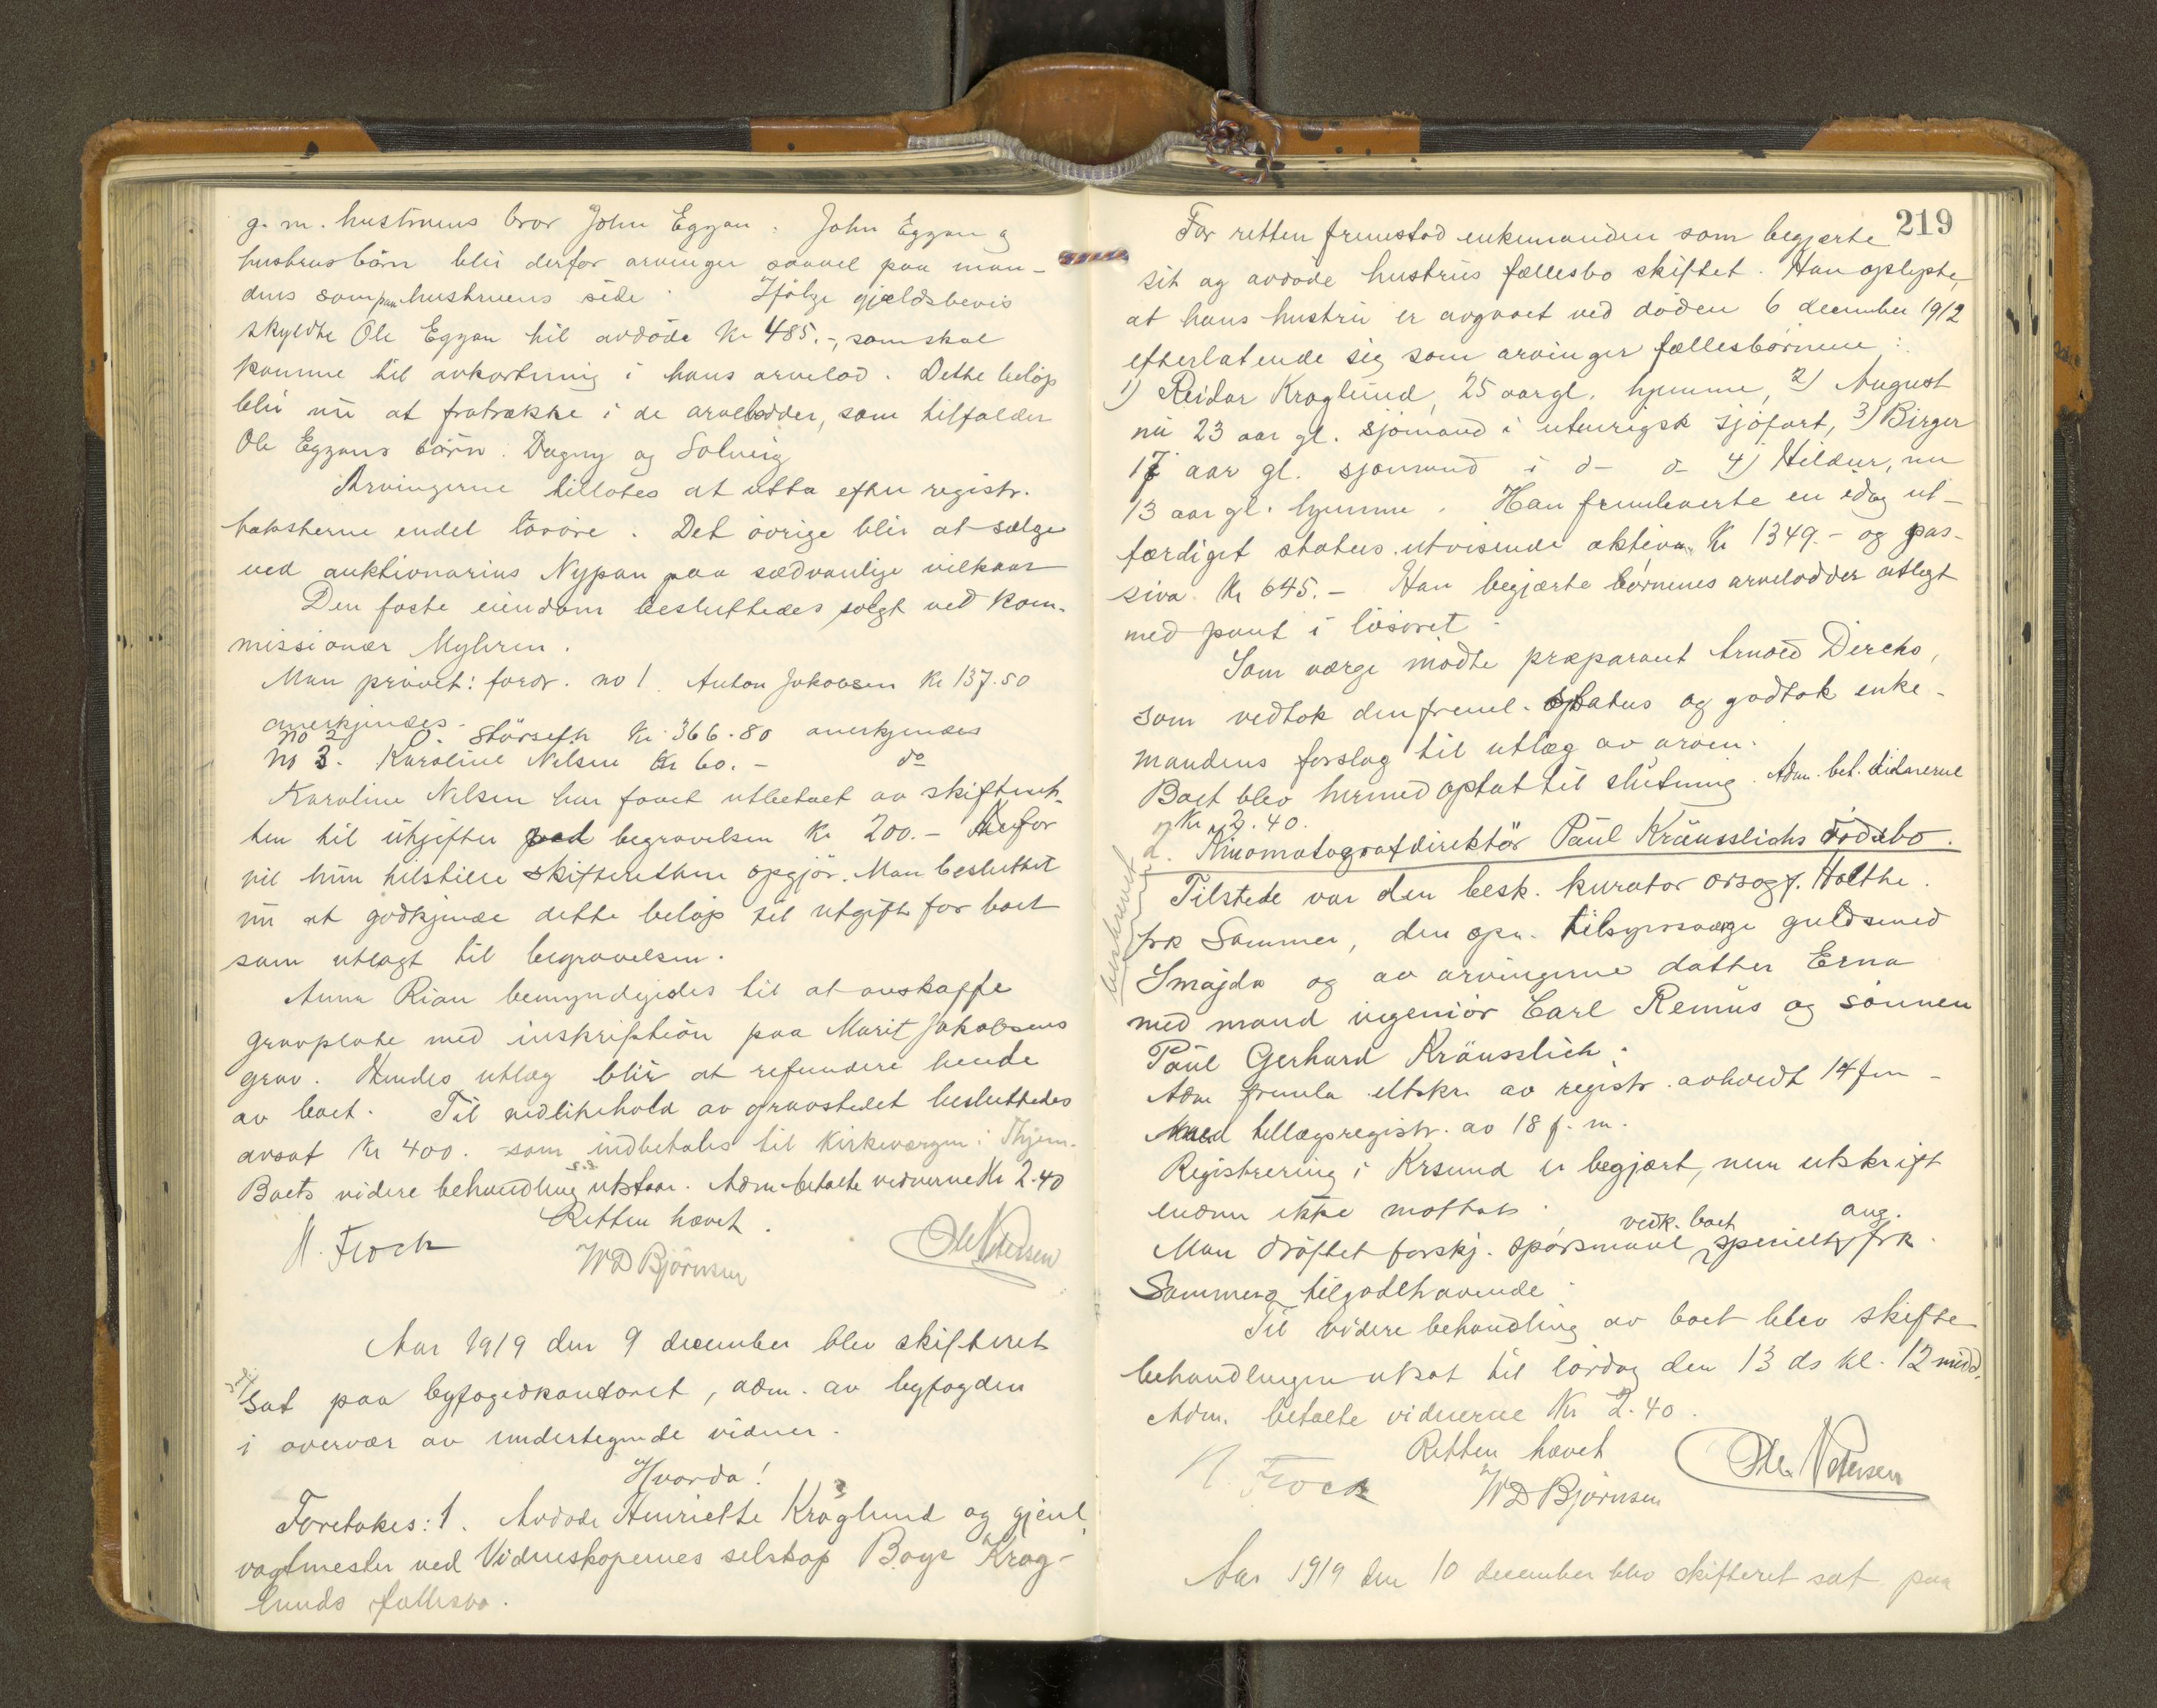 g. m. hustruens bror John Eggan. John Eggan og
hustrus börn blir derfor arvinger saavel paa man-
dens som paa hustruens side. Ifölge gjeldsbevis
skyldte Ole Eggan til avdöde Kr 485.-, som skal
komme til avkortning i hans arvelod. Dette belöp
blir nu at fratrække i de arvelodder, som tilfalder
Ole Eggans börn. Dagny og Solveig
Arvingerne tillotes at utta efter registr.
taksterne endel lösöre. Det övrige blir at sælge
ved auktionarius Nypan paa sædvanlige vilkaar
Den faste eiendom besluttedes solgt ved kom-
missionær Myhren.
Man prövet: fordr. no 1. Anton Jakobsen Kr 137.50
anerkjendes.
no 2 O. Störseth Kr 366.80 anerkjendes
no 3. Karoline Nelsen Kr 60.- do
Karoline Nelsen har faaet utbetalt av skifteret-
ten til utgifter ved begravelsen Kr 200.- Herfor
vil hun tilstille skifteretten opgjör. Man besluttet
nu at godkjende dette belöp til utgift for boet
som utlagt til begravelsen.
Anna Rian bemyndigedes til at anskaffe
gravplate med inskription paa Marit Jakobsens
grav. Hendes utlæg blir at refundere hende
av boet. Til vedlikehold av gravstedet besluttedes
avsat Kr 400. som indbetales til Kirkevergen i Thjem.
Boets videre behandling s.d. utstaar. Adm betalte vidnerne Kr 2.40
Retten hævet.
N. Flock WD Björnsen Ole Petersen
Aar 1919 den 9 december blev skifteret
sat paa byfogedkontoret, adm. av byfogden
i overvær av undertegnede vidner.
Hvorda!
Foretokes: 1. Avdöde Henriette Kraglund og gjenl.
vagtmester ved Videnskapernes selskap Boye Krag-
lunds fællesbo.
219
For retten fremstod enkemanden som begjærte
sit og avdöde hustrus fællesbo skiftet. Han oplyste,
at hans hustru er avgaaet ved döden 6 december 1912
efterlatende sig som arvinger fællesbörnene:
1) Reidar Kraglund, 25 aar gl. hjemme, 2) August
nu 23 aar gl. sjömand i utenrigsk sjöfart, 3) Birger
17 aar gl. sjömand i d- d- 4) Hildur, nu
13 aar gl. hjemme. Han fremleverte en idag ut-
færdiget status utvisende aktiva Kr 1349.- og pas-
siva Kr 645.- Han begjærte börnenes arvelodder utlagt
med pant i lösöret.
Som værge mödte præparant Arnold Dircks,
som vedtok den freml. status og godtok enke-
mandens forslag til utlæg av arven.
Boet blev hermed optat til slutning. Adm. bet. vidnerne
Kr 2.40.
2. Kinomatografdirektör Paul Kräusslichs dödsbo.
beskrevet
Tilstede var den besk. kurator orsagf. Holthe.
frk Sommer, den opn. tilsynsværge guldsmed
Smajda og av arvingerne datter Erna
med mand ingeniör Carl Remus og sönnen
Paul Gerhard Kräusslich.
Adm fremla utskr. av registr. avholdt 14 f.m-
med tillægsregistr. av 18 f. m.
Registrering i Krsund er begjært, men utskrift
endnu ikke mottat.
Man dröftet forskj. spörsmaal vedk. boet specielt ang. frk
Sommers tilgodehavende.
Til videre behandling av boet blev skifte
behandlingen utsat til lördag den 13 ds kl. 12 midd.
Adm. betalte vidnerne Kr 2.40.
Retten hævet
N. Flock WD Björnsen Ole Petersen
Aar 1919 den 10 december blev skifteret sat paa